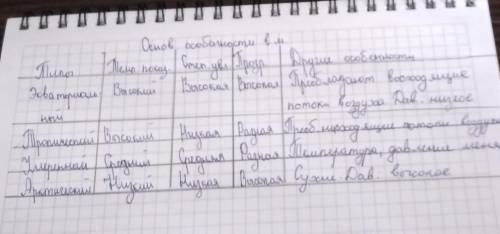 Основ. особенности в.м
Типы Темп. показ. Степ. увл. Прозр Другие особенности
Экваториаль Высокий Высокая Высокая Преобладают восходящие
ный потоки воздуха Дав. низкое
Тропический Высокий Низкая Разная Преоб. нисходящие потоки воздуха
Умеренный Средний Средняя Разная Температура, давление меня
Арктический Низкий Низкая Высокая Сухие. Дав. высокое